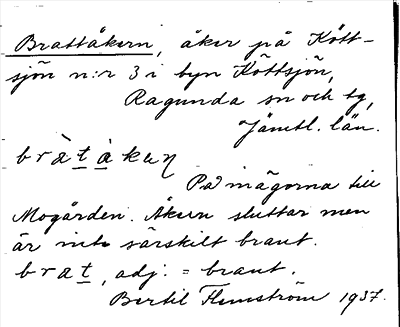 Brattåkern, åker på Kött-
sjön n:r 3 i byn Köttsjön,
Ragunda sn och tg,
Jämtl. län.
bràtàkuη
På mägorna till
Mogården. Åkern sluttar men
är inte särskilt brant.
brat, adj. = brant.
Bertil Flemström 1937.